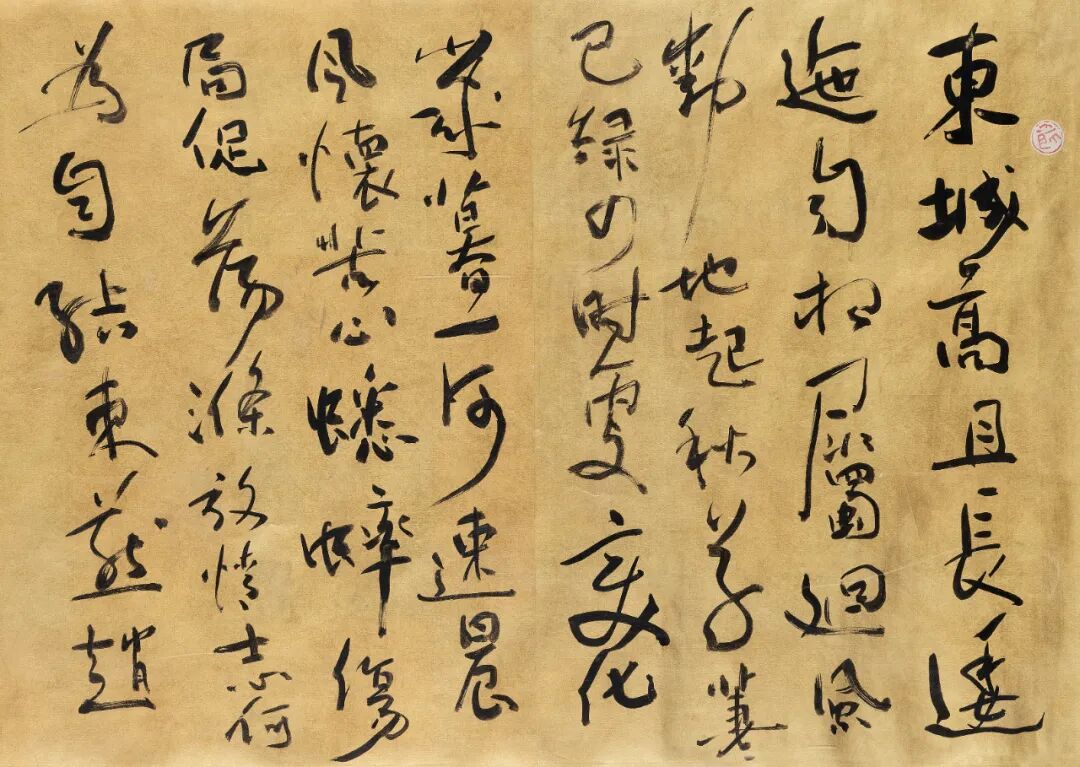 東城高且長逶
迤自相屬迴風
動地起秋草萋
已緑四時更變化
歲暮一何速晨
風懷苦心蟋蟀傷
局促蕩滌放情志何
為自結束燕趙